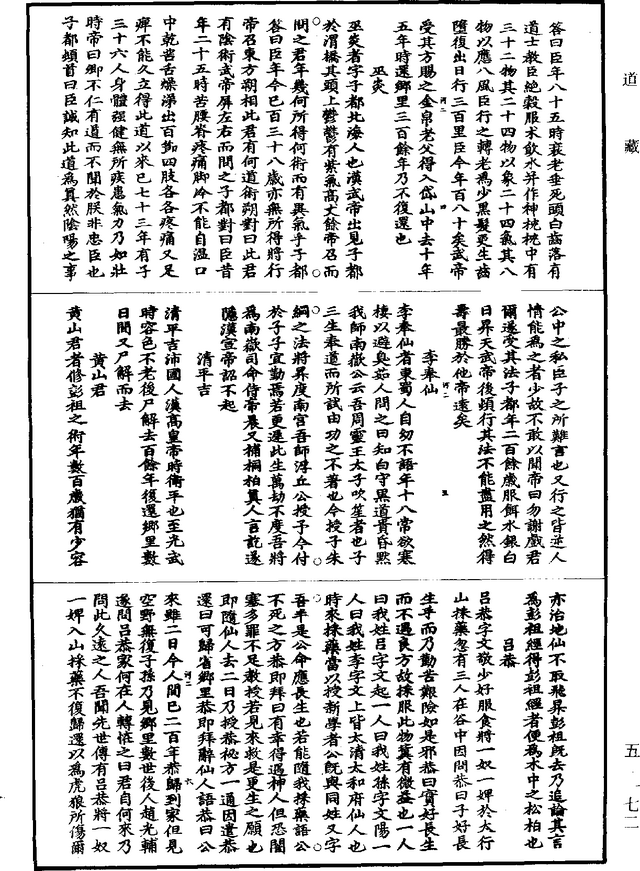 道藏
答曰臣年八十五時衰老垂死頭白齒落有
道士教臣絶穀服术飲水并作神枕枕中有
三十二物其二十四物以象二十四氣其八
物以應八風臣行之轉老為少黑髮更生齒
墮復出日行三百里臣今年百八十矣武帝
受其方賜之金帛老父得入岱山中去十年
五年時還鄉里三百餘年乃不復還也
巫炎
巫炎者字子都北海人也漢武帝出見子都
於渭橋其頭上鬱鬱有紫氣高丈餘帝召而
問之君年幾何所得何術而有異氣乎子都
答曰臣年今已百三十八歲亦無所得將行
帝召東方朔相此君有何道術朔對曰此君
有陰術武帝屏左右而問之子都對曰臣昔
年二十五時苦腰脊疼痛脚冷不能自温口
中乾苦舌燥涕出百節四肢各各疼痛又足
痹不能久立得此道以來已七十三年有子
三十六人身體强健無所疾患氣力乃如壯
時帝曰卿不仁有道而不聞於朕非忠臣也
子都頓首曰臣誠知此道為真然陰陽之事
公中之私臣子之所難言也又行之皆逆人
情能為之者少故不敢以聞帝曰勿謝戲君
爾遂受其法子都年二百餘歲服餌水銀白
日昇天武帝後頗行其法不能盡用之然得
壽最勝於他帝遠矣
李奉仙
李奉仙者東蜀人自幼不語年十八常欲寒
棲以避臭茹人問之曰知白守黑道貴昏默
我師南嶽公云吾周靈王太子吹笙者也子
三生奉道而所試由功之不著也今授子朱
綱之法將昇度南宮吾師浮丘公授子今付
於子子宜勤焉若更遲此生萬劫不度吾將
為南嶽司命侍帝晨又補桐柏真人言訖遂
隱漢宣帝詔不起
清平吉
清平吉沛國人漢高皇帝時衛平也至光武
時容色不老後尸解去百餘年後還鄉里數
日間又尸解而去
黄山君
黄山君者修彭祖之術年數百歲猶有少容
亦治地仙不取飛昇彭祖既去乃追論其言
為彭祖經得彭祖經者便為木中之松柏也
吕恭
吕恭字文敬少好服食將一奴一婢於太行
山採藥忽有三人在谷中因問恭曰子好長
生乎而乃勤苦艱險如是邪恭曰實好長生
而不遇良方故採服此物冀有微益也一人
曰我姓吕字文起一人曰我姓孫字文陽一
人曰我姓李字文上皆太清太和府仙人也
時來採藥當以授新學者公既與同姓又字
吾半是公命應長生也若能隨我採藥語公
不死之方恭即拜曰有幸得遇神人但恐闇
塞多罪不足教授若見來救是更生之願也
即隨仙人去二日乃授恭祕方一通因遣恭
還曰可歸省鄉里恭即拜辭仙人語恭曰公
來雖二日今人間已二百年恭歸到家但見
空野無復子孫乃見鄉里數世後人趙光輔
遂問吕恭家何在人轉怪之曰君自何來乃
問此久遠之人吾聞先世傳有吕恭將一奴
一婢入山採藥不復歸還以為虎狼所傷爾
五 七二